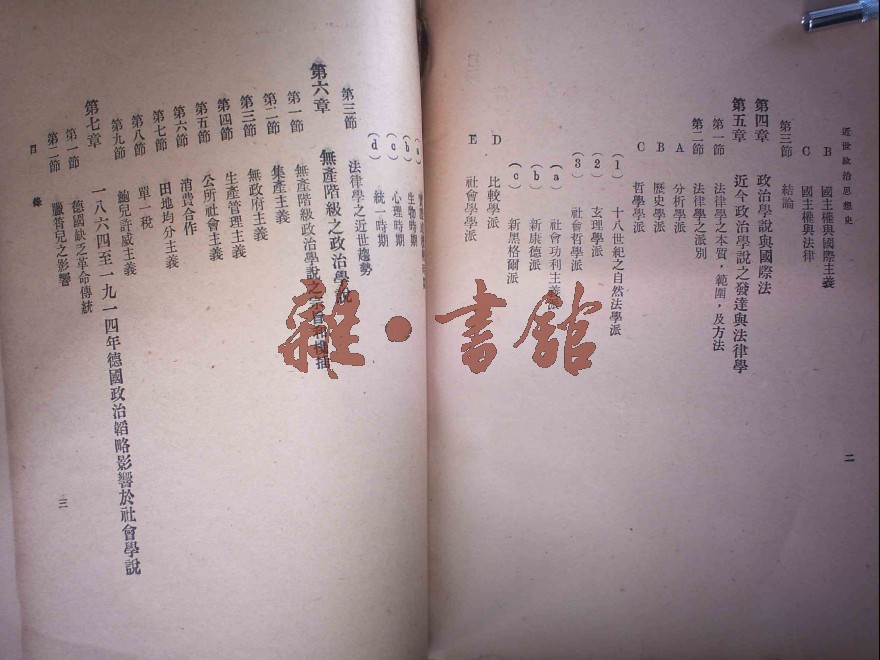 近世政治思想史
B 國主權與國際主義
C 國主權與法律
第三節 結論
第四章 政治學說與國際法
第五章 近今政治學說之發達與法律學
第一節 法律學之本質，範圍，及方法
第二節 法律學之派別
A 分析學派
B 歷史學派
C 哲學學派
(1) 十八世紀之自然法學派
(2) 玄理學派
(3) 社會哲學派
(a) 社會功利主義派
(b) 新康德派
(c) 新黑格爾派
D 比較學派
E 社會學學派
二
(a)
(b) 生物時期
(c) 心理時期
(d) 統一時期
第三節 法律學之近世趨勢
第六章 無產階級之政治學說
無產階級政治學說之
第一節 集產主義
第二節 無政府主義
第三節 生產管理主義
第四節 公所社會主義
第五節 消費合作
第六節 田地均分主義
第七節 單一稅
第八節 鮑兒許威主義
第九節
第七章 一八六四至一九一四年德國政治韜略影響於社會學說
第一節 德國缺乏革命傳統
第二節 臘答兒之影響
目 錄
三
雜·書館